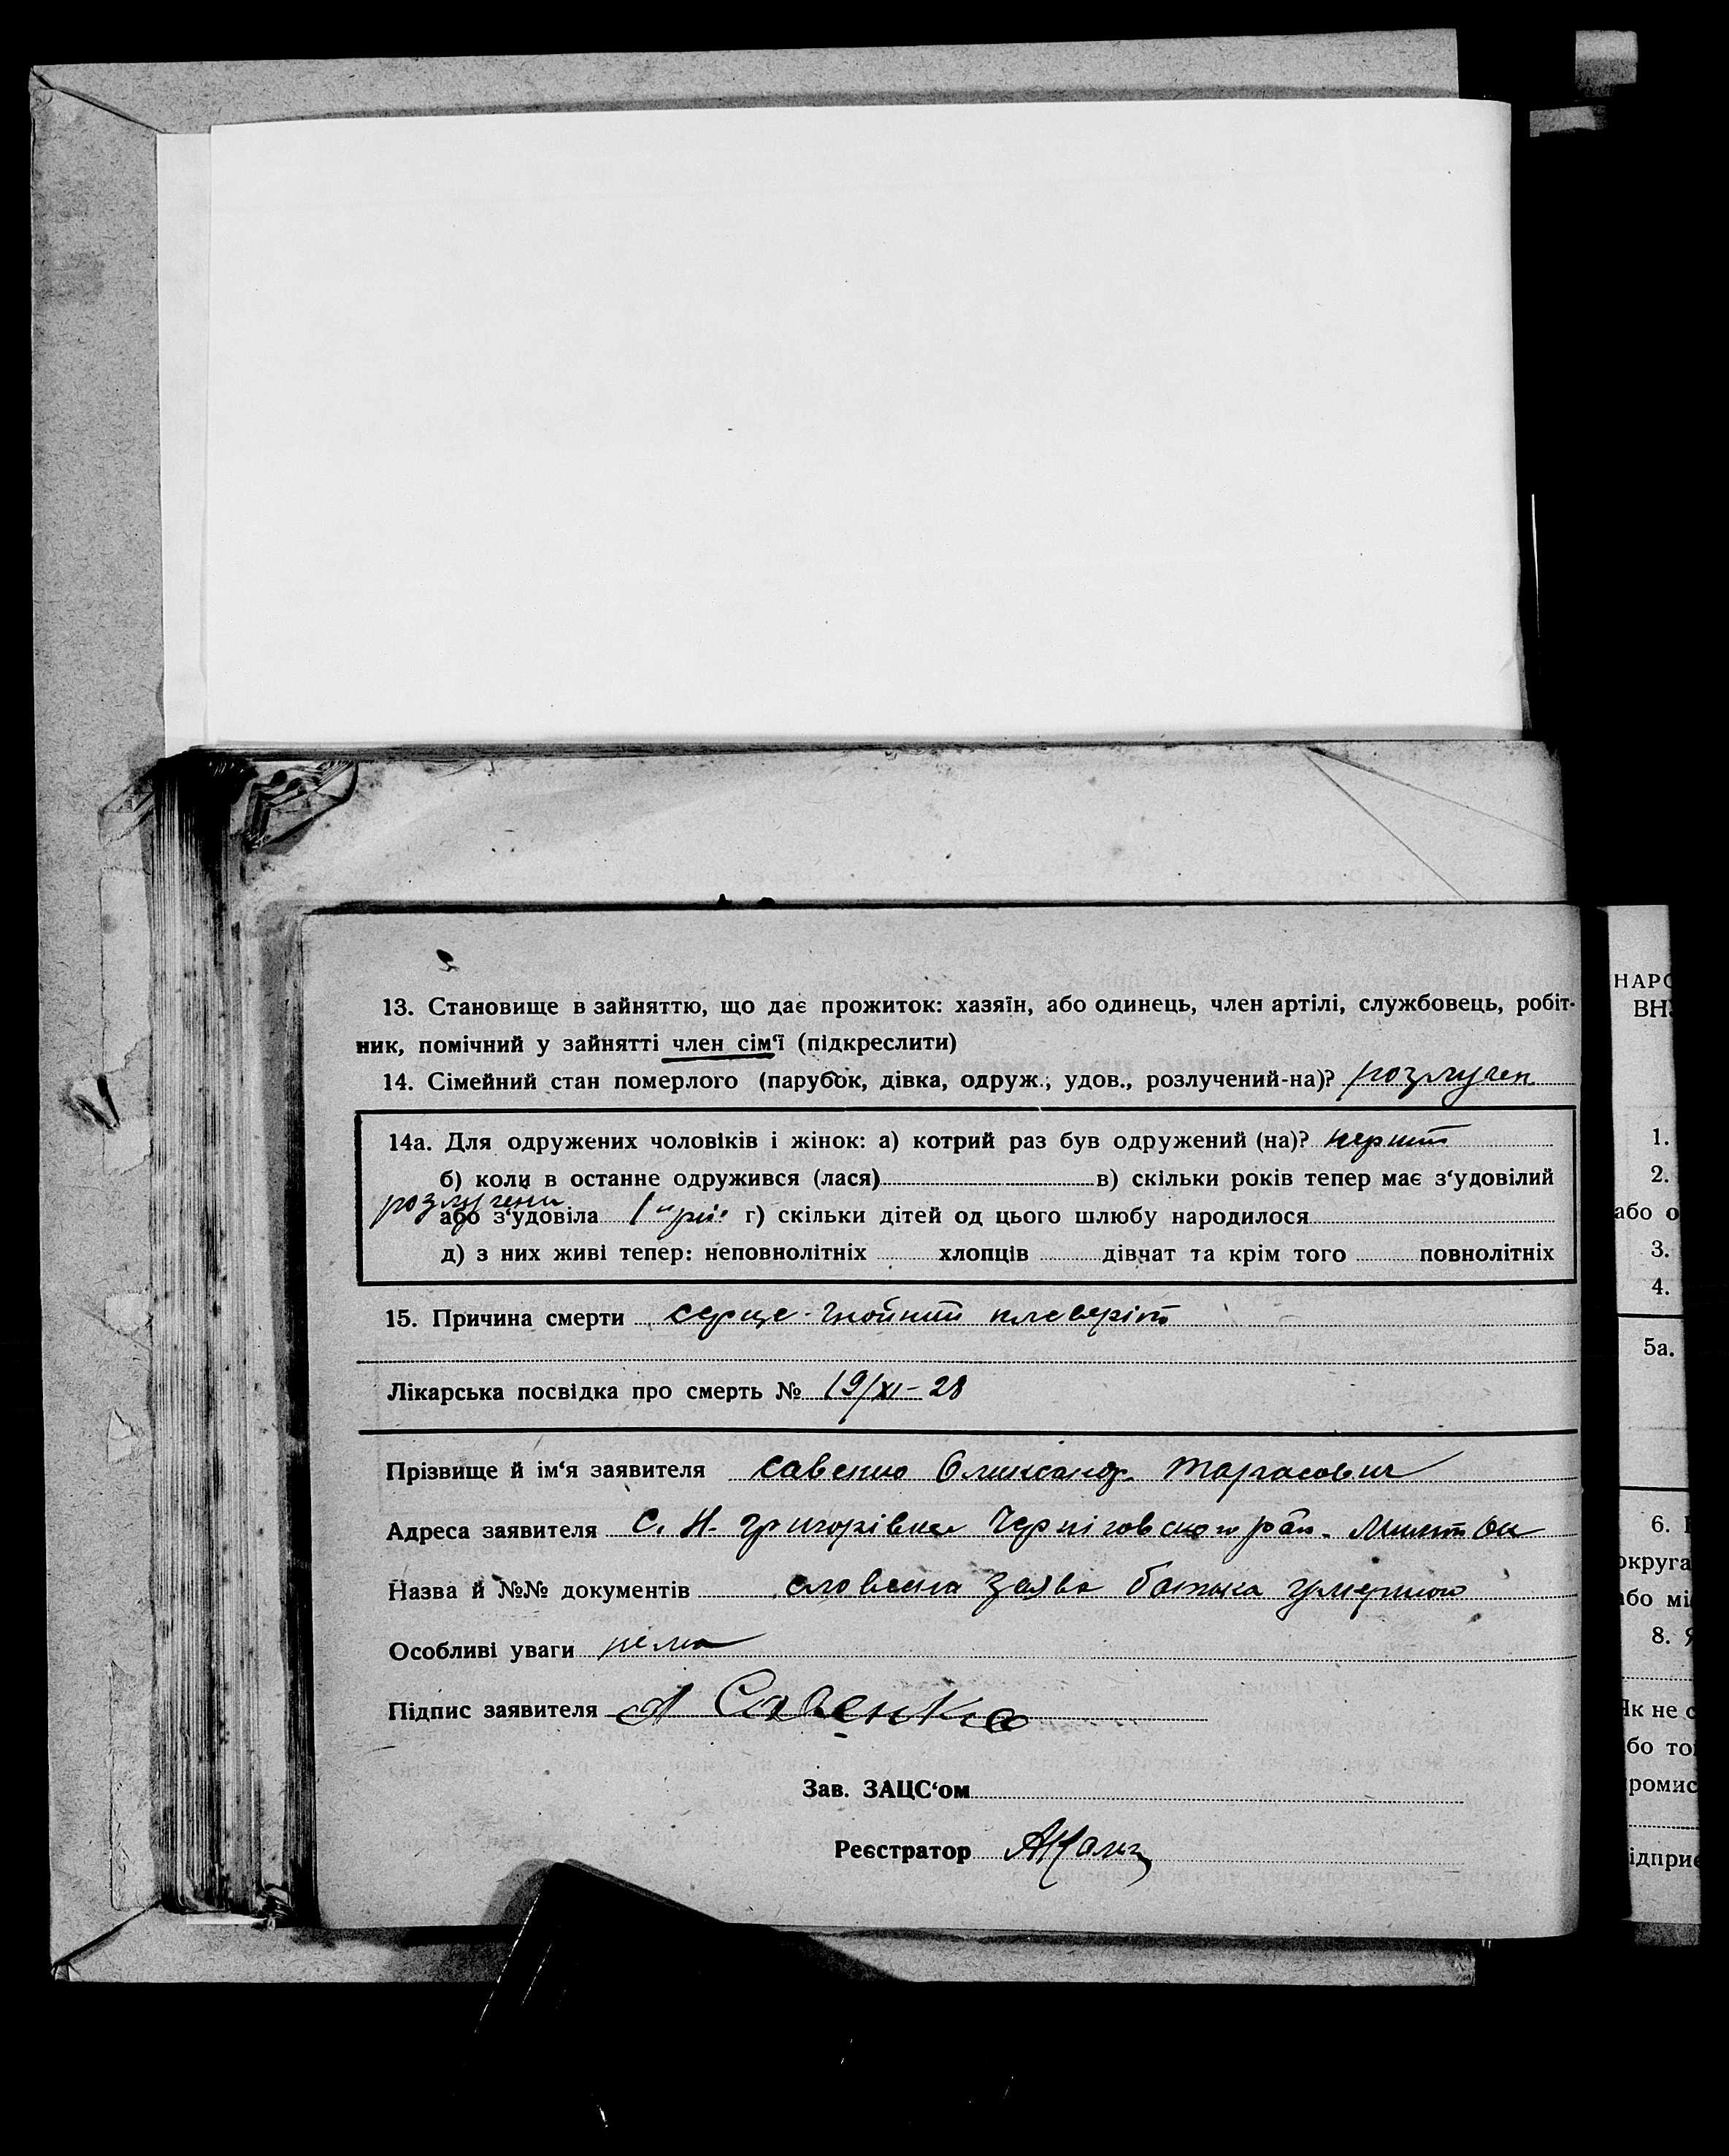 13. Становище в зайняттю, що дає прожиток: хазяїн, або одинець, член артілі, службовець, робіт-
ник, помічний у зайнятті член сім‘ї (підкреслити)
14. Сімейний стан померлого (парубок, дівка, одруж., удов., розлучений-на)? розлучен
14а. Для одружених чоловіків і жінок: а) котрий раз був одружений (на)? перший
б) коли в останне одружився (лася) в) скільки років тепер має з‘удовілий
розлучений
або з‘удовіла 1 г) скільки дітей од цього шлюбу народилося
д) з них живі тепер: неповнолітніх хлопців дівчат та крім того повнолітніх
15. Причина смерти серце-гнойний плеверіт
Лікарська посвідка про смерть № 19/XI-28
Прізвище й ім‘я заявителя Савенко Олександр Тарасович
Адреса заявителя С. Н-Григорівка Черніговского рай. Меліт Ок
Назва й №№ документів словесна заява батька умершого
Особливі уваги нема
Підпис заявителя А Савенко
Зав. ЗАЦС‘ом
Реєстратор
НАРО
ВН
1.
2.
або о
3.
4.
5а.
6.
округа
або мі
8. Я
Як не с
бо то
ромис
ідприє